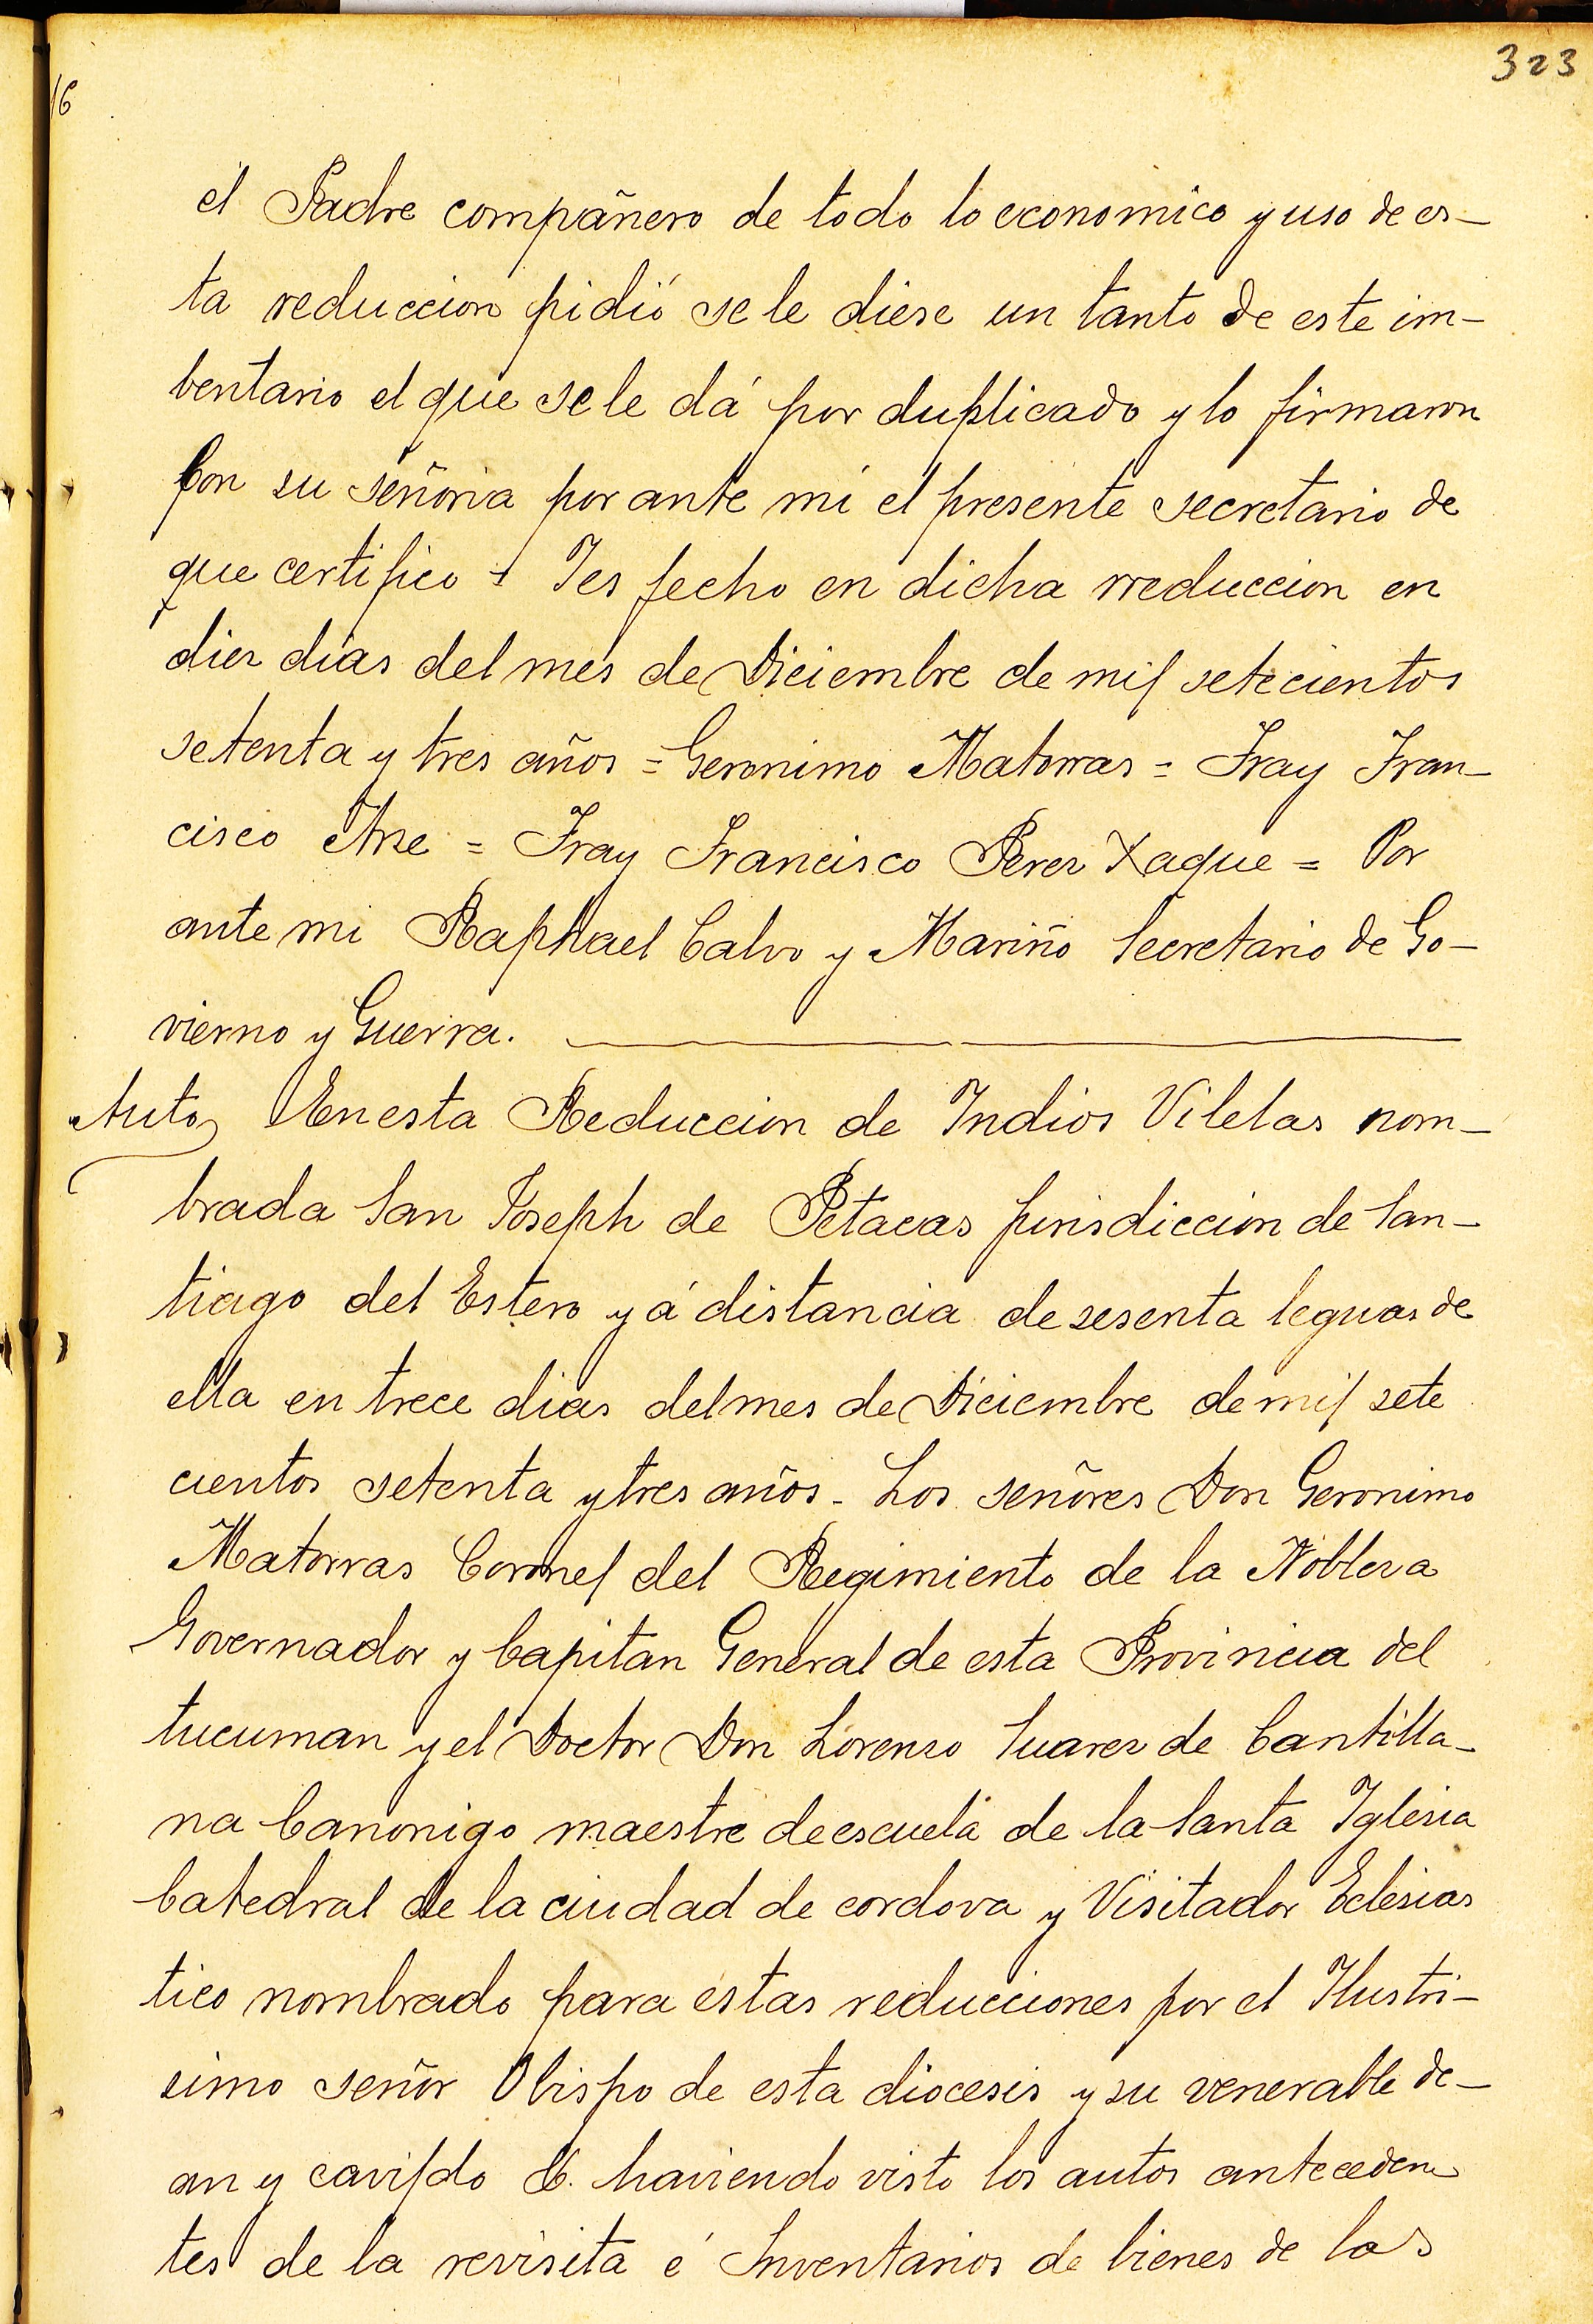 323
16
el Padre compañero de todo lo economico y uso de es-
ta reduccion pidió se le diese un tanto de este im-
bentario el que se le dá por duplicado y lo firmaron
Con su señoria por ante mi el presente secretario de
que certifico + Ies fecho en dicha rreduccion en
diez dias del mes de Diciembre de mil setecientos
setenta y tres años = Geronimo Matorras = Fray Fran-
cisco Arze = Fray Francisco Perez Xaque = Por
ante mi Raphael Calvo y Mariño Secretario de Go-
vierno y Guerra.
Auto En esta Reduccion de Indios Vilelas nom-
brada San Joseph de Petacas jurisdiccion de San-
tiago del Estero y á distancia de sesenta leguas de
ella en trece dias del mes de Diciembre de mil sete
cientos setenta y tres años - Los señores Don Geronimo
Matorras Coronel del Regimiento de la Nobleza
Governador y Capitan General de esta Provincia del
tucuman y el Doctor Don Lorenzo Suarez de Cantilla-
na Canonigo maestre de escuela de la Santa Iglesia
Catedral de la ciudad de cordova y Visitador Eclesias
tico nombrado para estas reducciones por el Ilustri-
simo señor Obispo de esta diocesis y su venerable de-
an y cavildo &. haviendo visto los autos anteceden
tes de la revisita é Inventarios de bienes de las